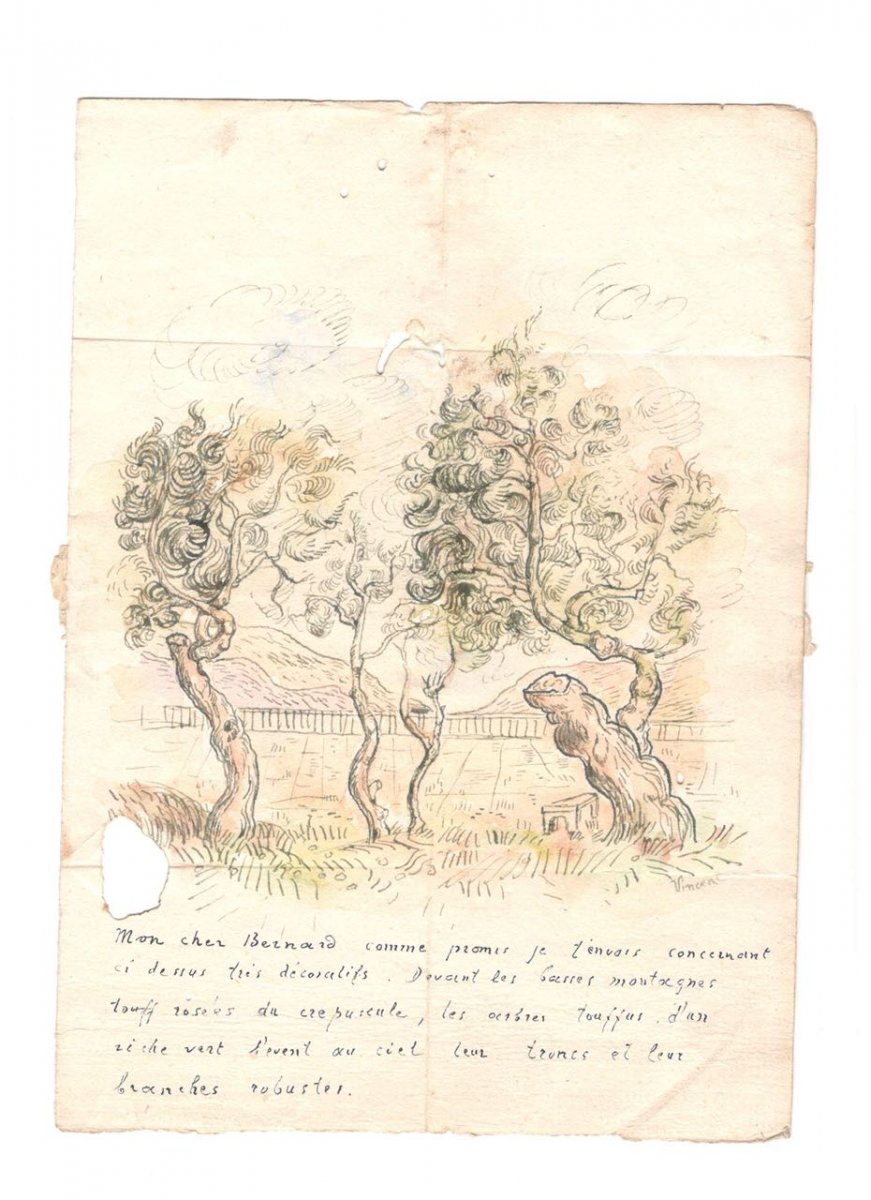 Vincent
Mon cher Bernard comme promis je t'envois concernant
ci dessus très décoratifs. Devant les basses montagnes
touff rosées du crepuscule, les arbres touffus d'un
riche vert l'event au ciel leur troncs et leur
branches robustes.